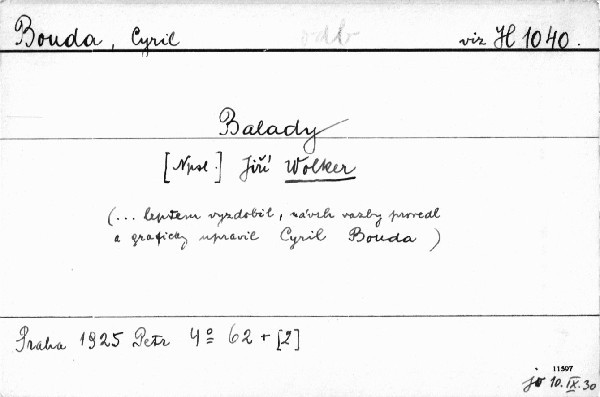 Bouda, Cyril odb viz H 1040.
Balady
[Npsl.] Jiří Wolker
(... leptem vyzdobil, návrh vazby provedl
a graficky upravil Cyril Bouda)
Praha 1925 Petr 4º 62 + [2]
11397
jo 10.IX.30